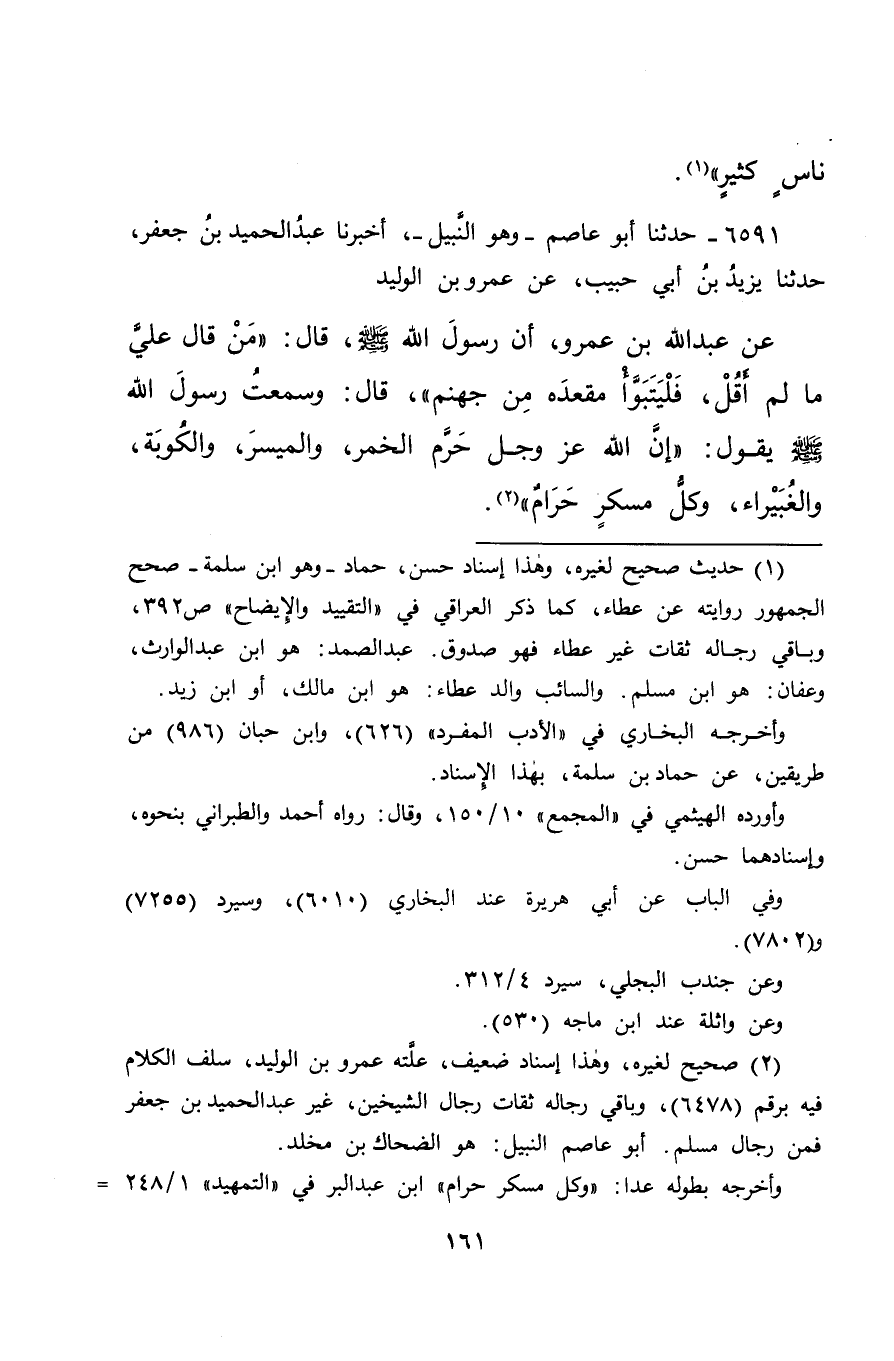 ناسٍ كثيرٍ»(١).
٦٥٩١ ـ حدثنا أبو عاصم ـ وهو النَّبيل ـ، أخبرنا عبدُالحميد بنُ جعفر،
حدثنا يزيدُ بنُ أبي حبيب، عن عمرو بن الوليد
عن عبدالله بن عمرو، أن رسولَ الله ﷺ، قال: «مَنْ قال عليَّ
ما لم أَقُلْ، فَلْيَتَبَوَّأْ مقعدَه مِن جهنم»، قال: وسمعتُ رسولَ الله
ﷺ يقول: «إنَّ الله عز وجل حَرَّم الخمر، والميسرَ، والكُوبَة،
والغُبَيْراء، وكلُّ مسكرٍ حَرَامٌ»(٢).
(١) حديث صحيح لغيره، وهٰذا إسناد حسن، حماد ـ وهو ابن سلمة ـ صحح
الجمهور روايته عن عطاء، كما ذكر العراقي في «التقييد والإيضاح» ص٣٩٢،
وباقي رجاله ثقات غير عطاء فهو صدوق. عبدالصمد: هو ابن عبدالوارث،
وعفان: هو ابن مسلم. والسائب والد عطاء: هو ابن مالك، أو ابن زيد.
وأخرجه البخاري في «الأدب المفرد» (٦٢٦)، وابن حبان (٩٨٦) من
طريقين، عن حماد بن سلمة، بهٰذا الإسناد.
وأورده الهيثمي في «المجمع» ١٥٠/١٠، وقال: رواه أحمد والطبراني بنحوه،
وإسنادهما حسن.
وفي الباب عن أبي هريرة عند البخاري (٦٠١٠)، وسيرد (٧٢٥٥)
و(٧٨٠٢).
وعن جندب البجلي، سيرد ٣١٢/٤.
وعن واثلة عند ابن ماجه (٥٣٠).
(٢) صحيح لغيره، وهٰذا إسناد ضعيف، علَّته عمرو بن الوليد، سلف الكلام
فيه برقم (٦٤٧٨)، وباقي رجاله ثقات رجال الشيخين، غير عبدالحميد بن جعفر
فمن رجال مسلم. أبو عاصم النبيل: هو الضحاك بن مخلد.
وأخرجه بطوله عدا: «وكل مسكر حرام» ابن عبدالبر في «التمهيد» ٢٤٨/١ =
١٦١